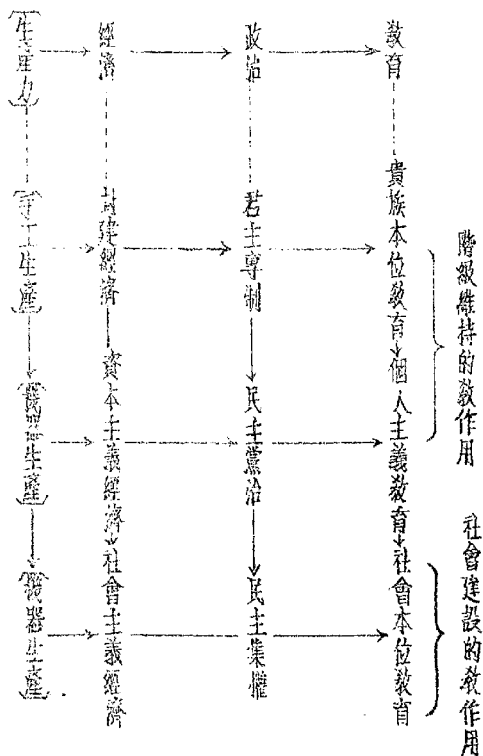 階級維持的敎作用
社會建設的敎作用
敎育
貴族本位敎育→個人主義敎育→社會本位敎育
政治
君主專制→民主黨治→民主集權
經濟
封建經濟→資本主義經濟→社會主義經濟
〔生產力〕
〔手工生產〕→〔機器生產〕→〔機器生產〕